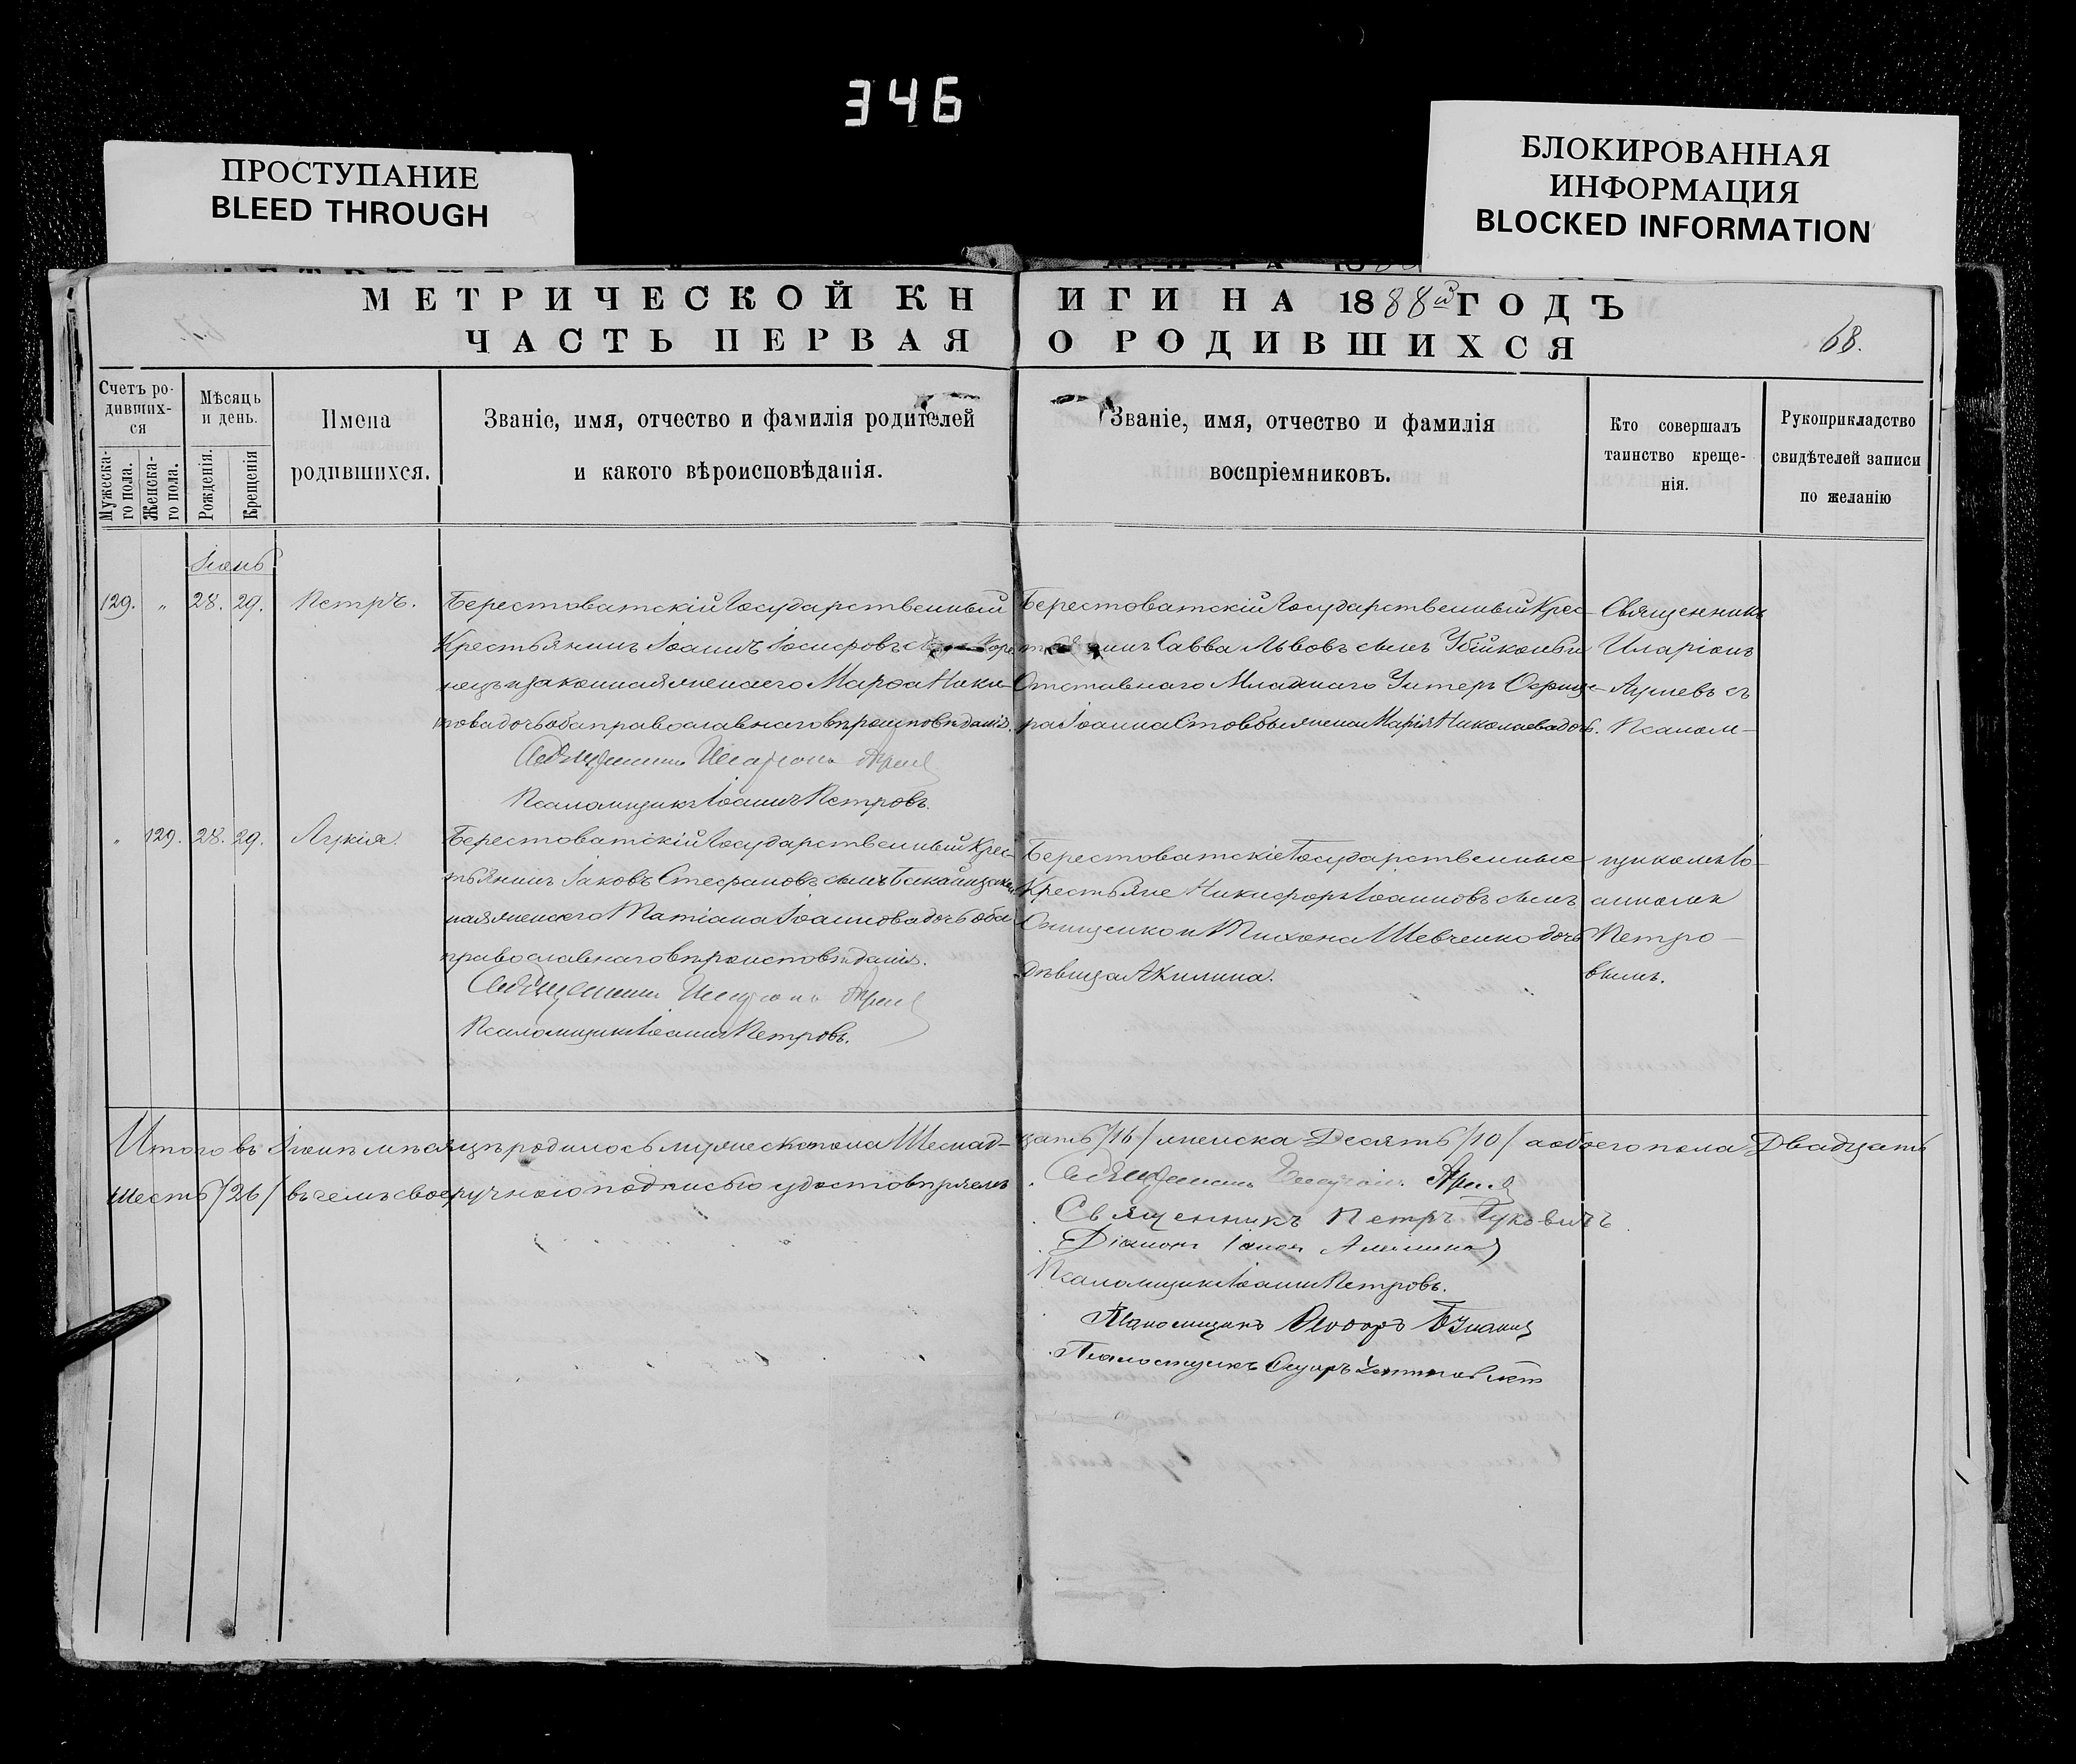 346
ПРОСТУПАНИЕ
BLEED THROUGH
БЛОКИРОВАННАЯ
ИНФОРМАЦИЯ
BLOCKED INFORMATION
МЕТРИЧЕСКОЙ КНИГИ НА 1888й ГОДЪ
ЧАСТЬ ПЕРВАЯ О РОДИВШИХСЯ
68.
Счетъ ро-
дивших-
ся
Мужеска-
го пола.
Женска-
го пола.
Мѣсяць
и день.
Рожденія.
Крещенія
Имена
родившихся.
Званіе, имя, отчество и фамилія родителей
и какого вѣроисповѣданія.
Званіе, имя, отчество и фамилія
воспріемниковъ.
Кто совершалъ
таинство креще-
нія.
Рукоприкладство
свидѣтелей записи
по желанію
Іюнь
129. " 28. 29. Петръ.
Берестоватскій Государственный
Крестьянинъ Іоаннъ Іосифовъ
и законная жена его Марфа Ники-
това дочь оба православнаго вѣроисповѣданія.
Священникъ Иларіонъ
Псаломщикъ Іоаннъ Петровъ.
Берестоватскій Государственный Крес-
Савва Львовъ сынъ и
Отставнаго Младшаго Унтеръ Офице-
ра Іоанна жена Марія Николаева дочь.
Священникъ
Иларіонъ
съ
Псалом-
" 129. 28. 29. Лукія.
Берестоватскій Государственный Крес-
тьянинъ Іаковъ Стефановъ сынъ и закон
ная жена его Татіана Іоаннова дочь оба
православнаго вѣроисповѣданія.
Священникъ Иларіонъ
Псаломщикъ Іоаннъ Петровъ.
Берестоватскіе Государственные
Крестьяне Никифоръ Іоанновъ сынъ
Онищенко и Тихона Шевченко дочь
дѣвица Акилина.
щикомъ Іо-
анномъ
Петро-
вымъ.
Итого въ Іюнѣ мѣсяцѣ родилось мужеска пола Шеснад-
цать /16/ женска Десять /10/ а обоего пола Двадцать
шесть /26/ въ чемъ своеручною подписью удостовѣряемъ
Священникъ Иларіонъ
Священникъ Петръ
Діаконъ
Псаломщикъ Іоаннъ Петровъ.
Псаломщикъ Ѳеодоръ
Псаломщикъ